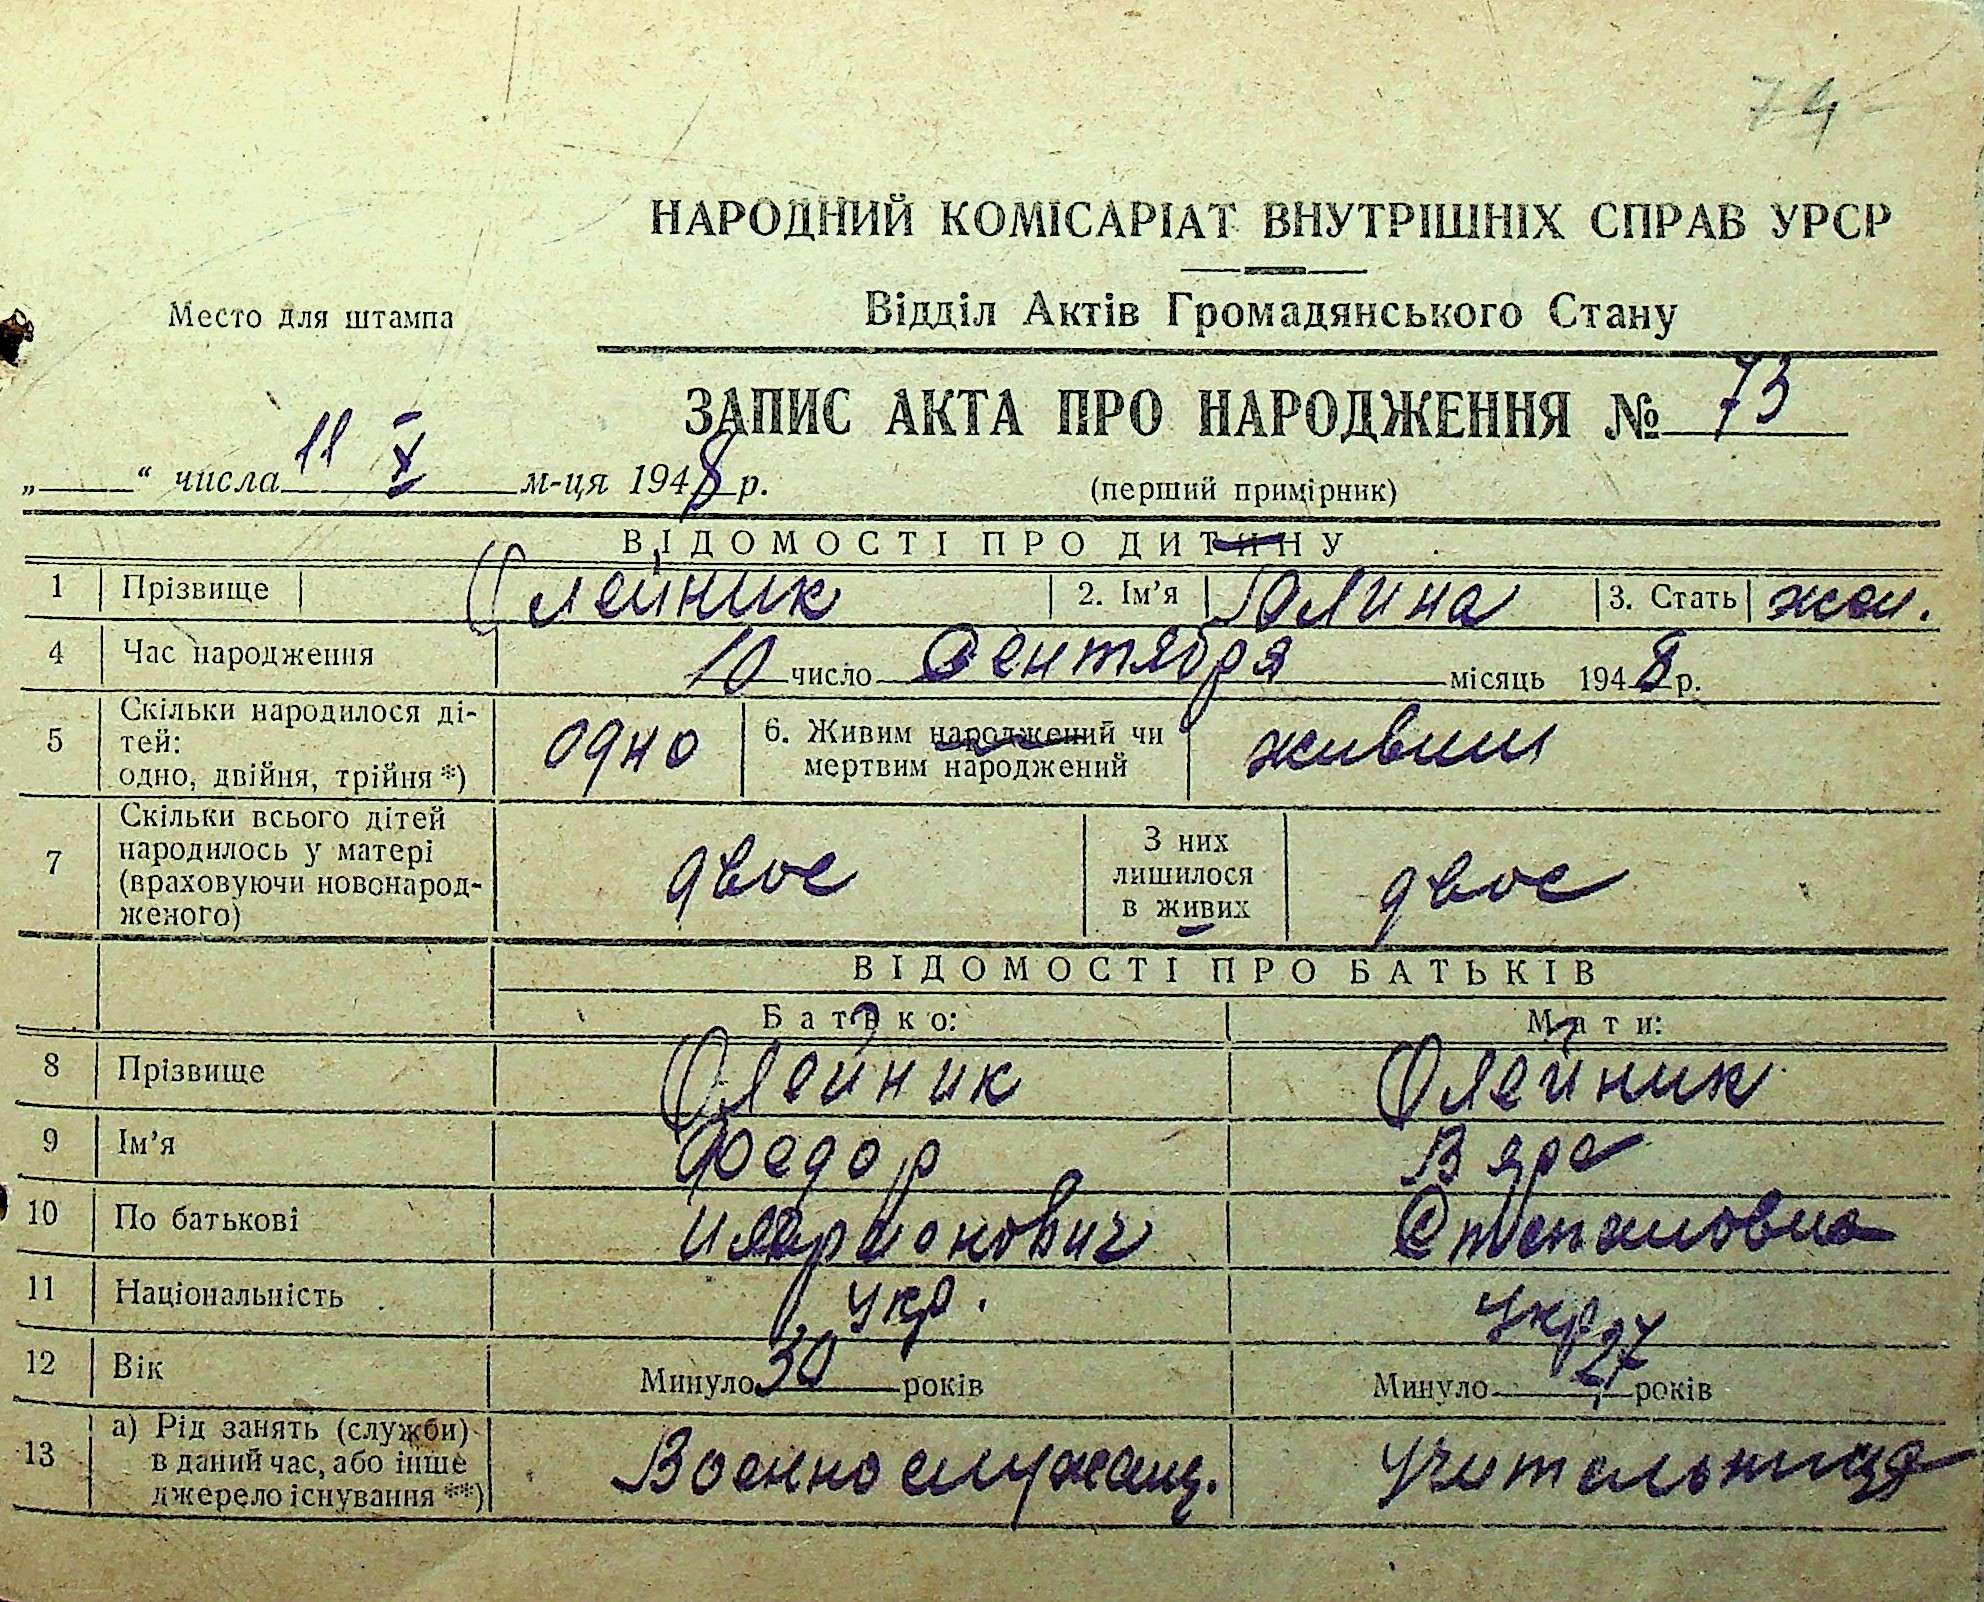 74
НАРОДНИЙ КОМІСАРІАТ ВНУТРІШНІХ СПРАВ УРСР
Место для штампа
Відділ Актів Громадянського Стану
ЗАПИС АКТА ПРО НАРОДЖЕННЯ № 73
„ “ числа 11 X м-ця 1948 р.
(перший примірник)
ВІДОМОСТІ ПРО ДИТИНУ
1 Прізвище Олейник 2. Ім’я Галина 3. Стать жен.
4 Час народження 10 число Сентября місяць 1948 р.
5 Скільки народилося ді-
тей:
одно, двійня, трійня *) одно 6. Живим народжений чи
мертвим народжений живим
7 Скільки всього дітей
народилось у матері
(враховуючи новонарод-
женого) двое З них
лишилося
в живих двое
ВІДОМОСТІ ПРО БАТЬКІВ
Батько: Мати:
8 Прізвище Олейник Олейник
9 Ім’я Федор Вера
10 По батькові Иларионович Степановна
11 Національність укр. укр
12 Вік Минуло 30 років Минуло 27 років
13 а) Рід занять (служби)
в даний час, або інше
джерело існування **) Военнослужащ. Учительница